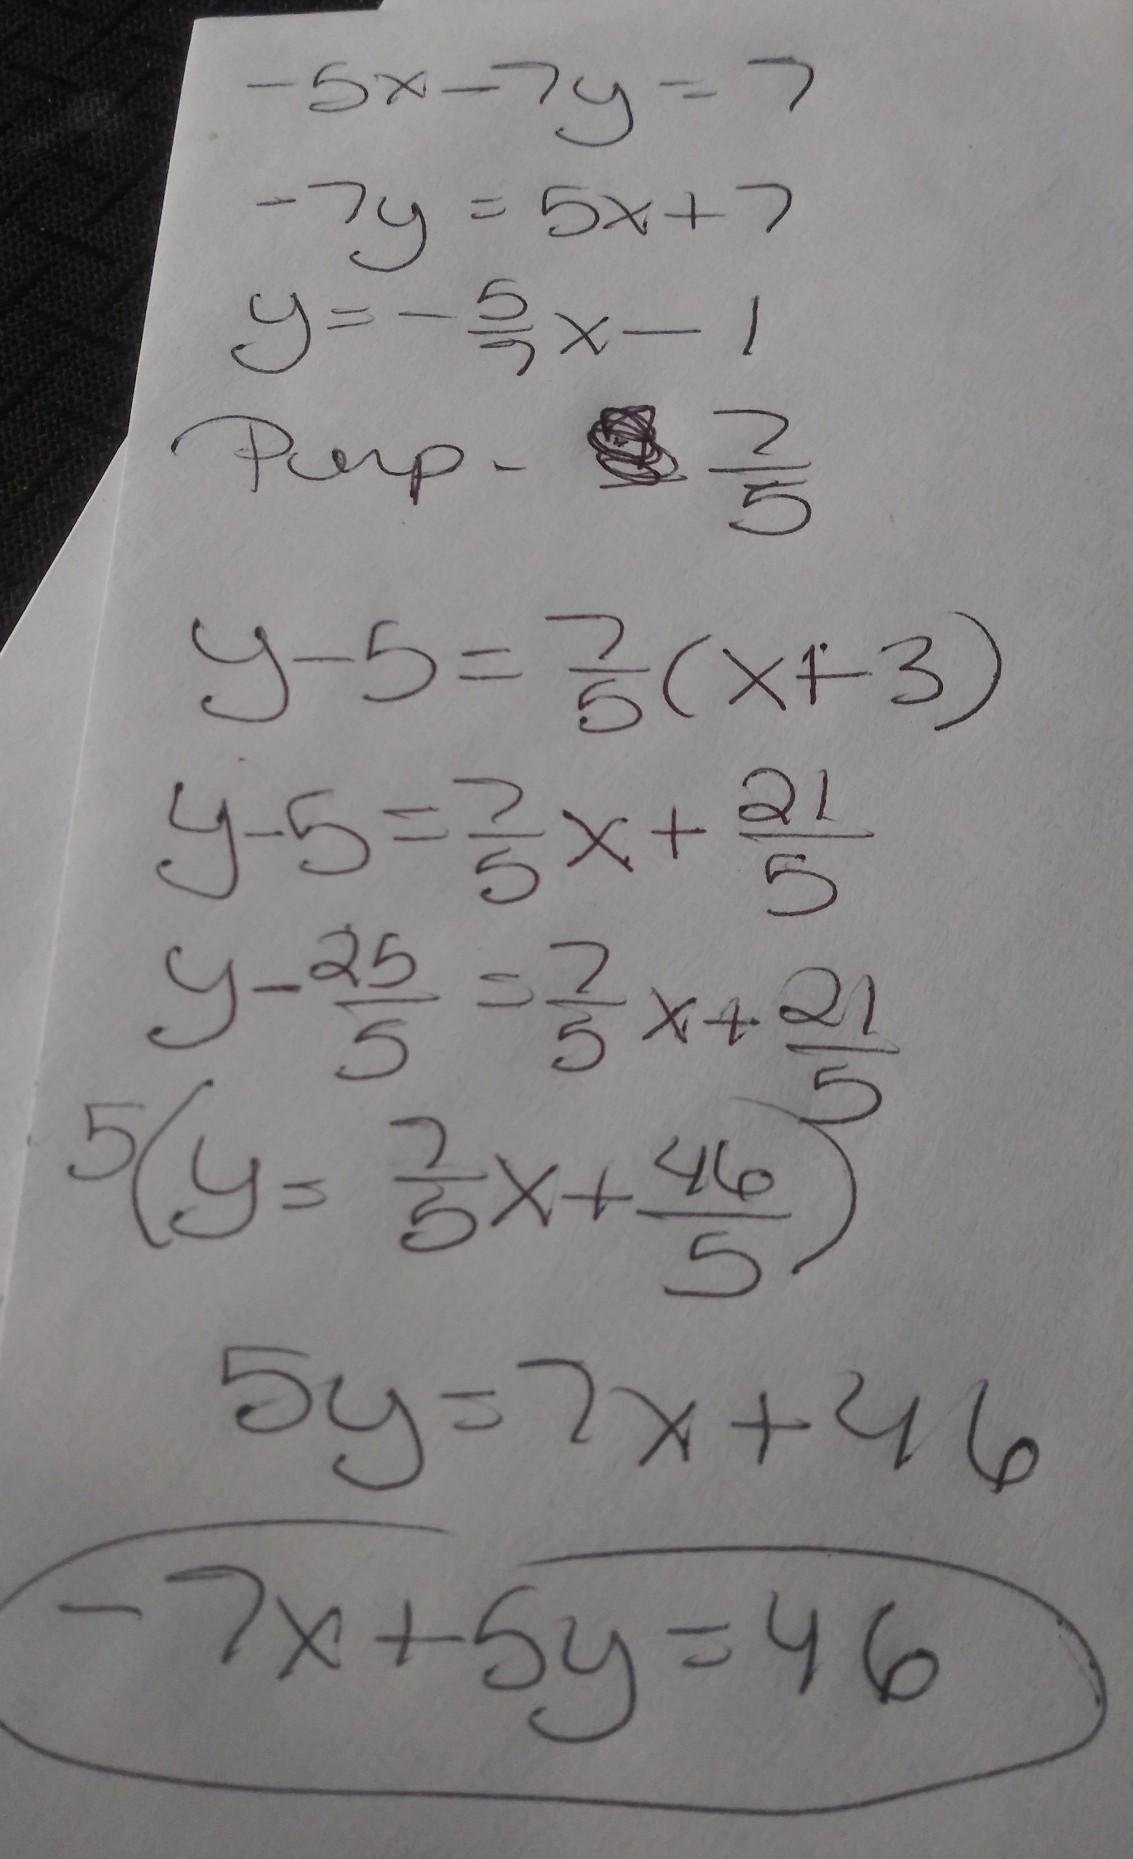 -5x-7y=7
-7y=5x+7
y=-5/7x-1
Perp- 7/5
y-5=7/5(x+3)
y-5=7/5x+21/5
y-25/5=7/5x+21/5
5(y=7/5x+46/5)
5y=7x+46
-7x+5y=46